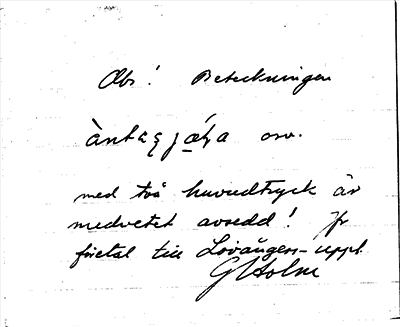 Obs! Beteckningen
osv.
med två huvudtryck är
medvetet avsedd! Jfr
förtal till Lövångers-uppt.
G Holm